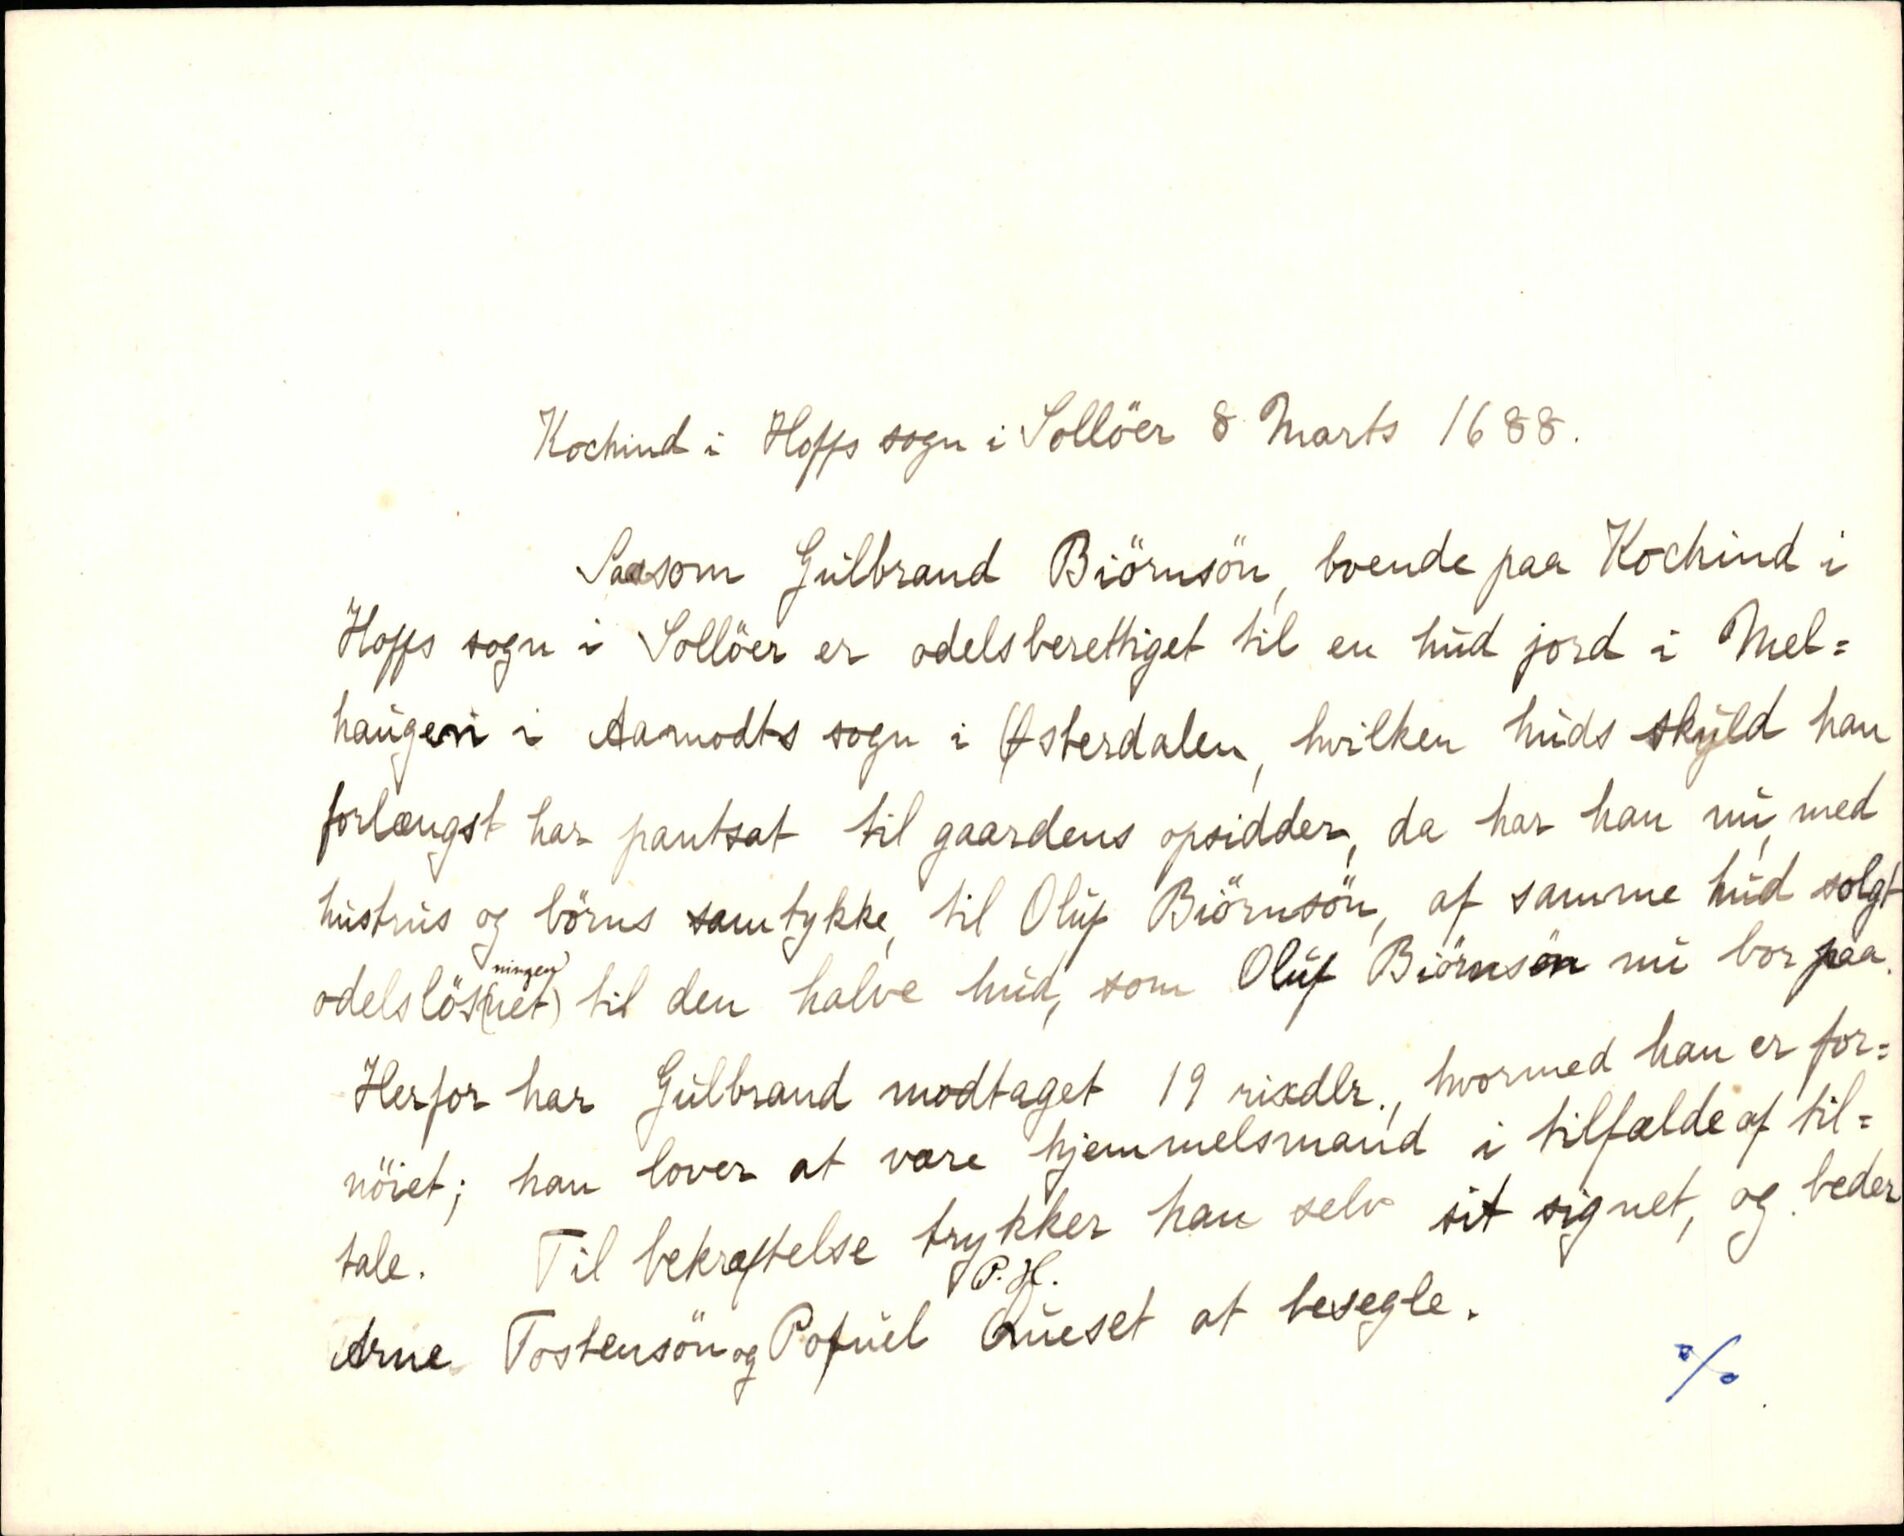 Kochind i Hoffs sogn i Sollöer 8 Marts 1688.
Saasom Gulbrand Biörnsön, boende paa Kochind i
Hoffs sogn i Sollöer er odelsberettiget til en hud jord i Mel=
haugen i Aamodts sogn i Østerdalen, hvilken huds skyld han
forlængst har pantsat til gaardens opsidder, da har han nu, med
hustrus og börns samtykke, til Oluf Biörnsön, af samme hud solgt
ningen
odelslös(net) til den halve hud, som Oluf Biörnsön nu bor paa.
Herfor har Gulbrand modtaget 19 rixdlr., hvormed han er for=
nöiet; han lover at være hjemmelsmand i tilfælde af til=
tale. Til bekræftelse trykker han selv sit signet, og beder
P. H.
Arne Tostensön og Pofuel Queset at besegle.
%